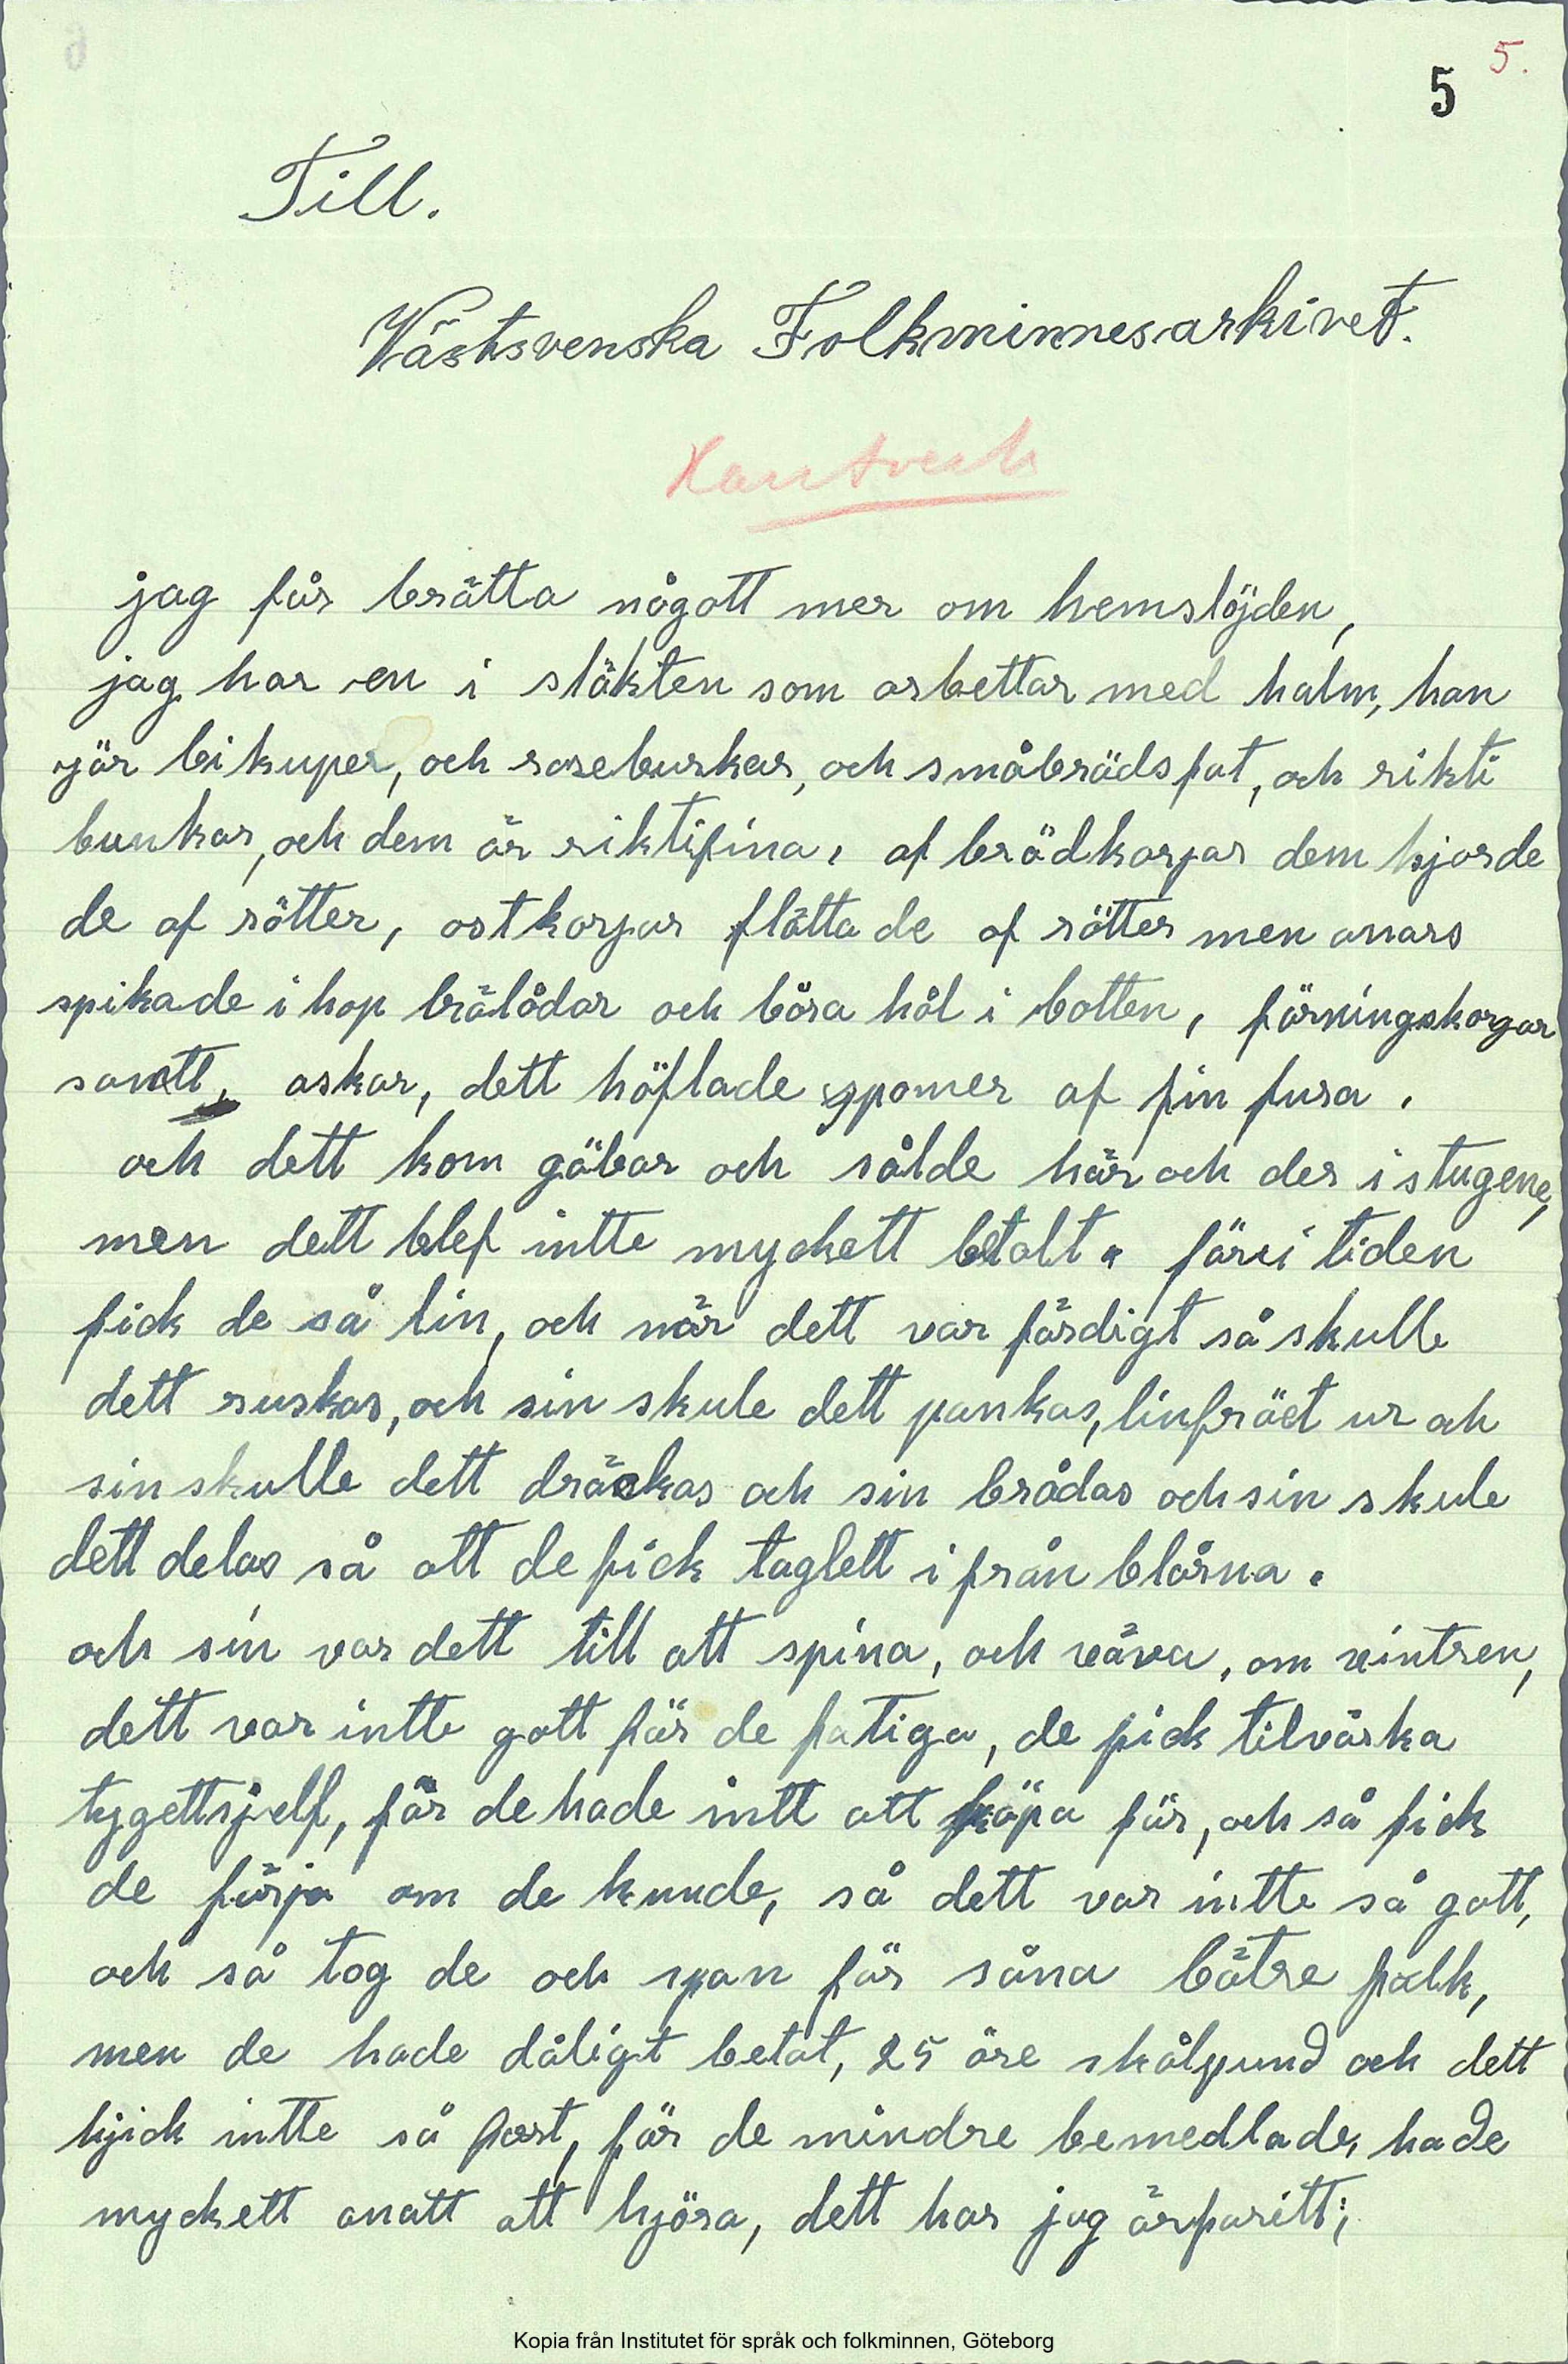 5 5.
Till.
Västsvenska Folkminnesarkivet.
Hantverk
jag får brätta någott mer om hemslöjden,
jag har en i släkten som arbettar med halm, han
gör bikuper, och roseburkar, och småbrödsfat, och rikti
bunkar, och dem är riktifina, af brödkorgar dem hjorde
de af rötter, ostkorgar flättade af rötter men anars
spikade i hop brälådar och böra hål i botten, förningskorgar
samtt, askar, dett höflade spomer af fin fura.
och dett kom göbar och sålde här och der i stugene,
men dett blef intte myckett betalt. föri tiden
fick de så lin, och när dett var färdigt så skulle
dett ruskas, och sin skule dett pankas, linfröet ur och
sin skulle dett dräckas och sin brådas och sin skule
dett delas så att de fick taglett i från blårna.
och sin var dett till att spina, och väva, om vintren,
dett var intte gott för de fatiga, de fick tilvärka
tygettsjelf, för de hade intt att köpa för, och så fick
de färja om de kunde, så dett var intte så gott,
och så tog de och span för såna bätre folk,
men de hade dåligt betat, 25 öre skålpund och dett
hjick intte så fort, för de mindre bemedlade, hade
myckett anatt att hjöra, dett har jag ärfaritt;
Kopia från Institutet för språk och folkminnen, Göteborg